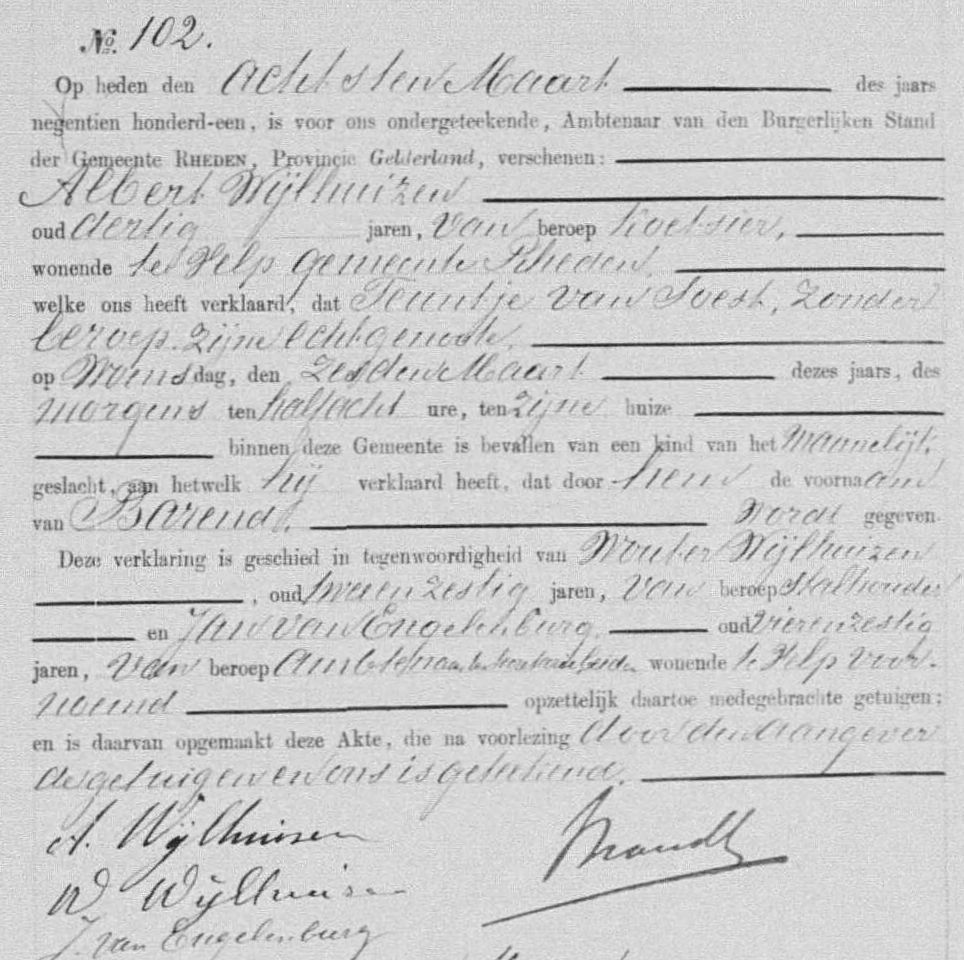 No. 102.
Op heden den achtsten Maart des jaars
negentien honderd-een, is voor ons ondergeteekende, Ambtenaar van den Burgerlijken Stand
der Gemeente RHEDEN, Provincie Gelderland, verschenen:
Albert Wijlhuizen
oud dertig jaren, van beroep koetsier,
wonende te Velp gemeente Rheden,
welke ons heeft verklaard, dat Teuntje van Soest, zonder
beroep, zijne echtgenoote,
op Woensdag, den zesden Maart dezes jaars, des
morgens ten half acht ure, ten zijne huize
binnen deze Gemeente is bevallen van een kind van het mannelijk
geslacht, aan hetwelk hij verklaard heeft, dat door hem de voornaam
van Barend, wordt gegeven.
Deze verklaring is geschied in tegenwoordigheid van Wouter Wijlhuizen
, oud tweeenzestig jaren, van beroep stalhouder
en Jan van Engelenburg, oud vierenzestig
jaren, van beroep ambtenaar ter secretarie beiden wonende te Velp voor-
noemd opzettelijk daartoe medegebrachte getuigen;
en is daarvan opgemaakt deze Akte, die na voorlezing door den aangever
de getuigen en ons is geteekend.
A. Wijlhuisen
Brandt
W Wijlhuisen
J. van Engelenburg